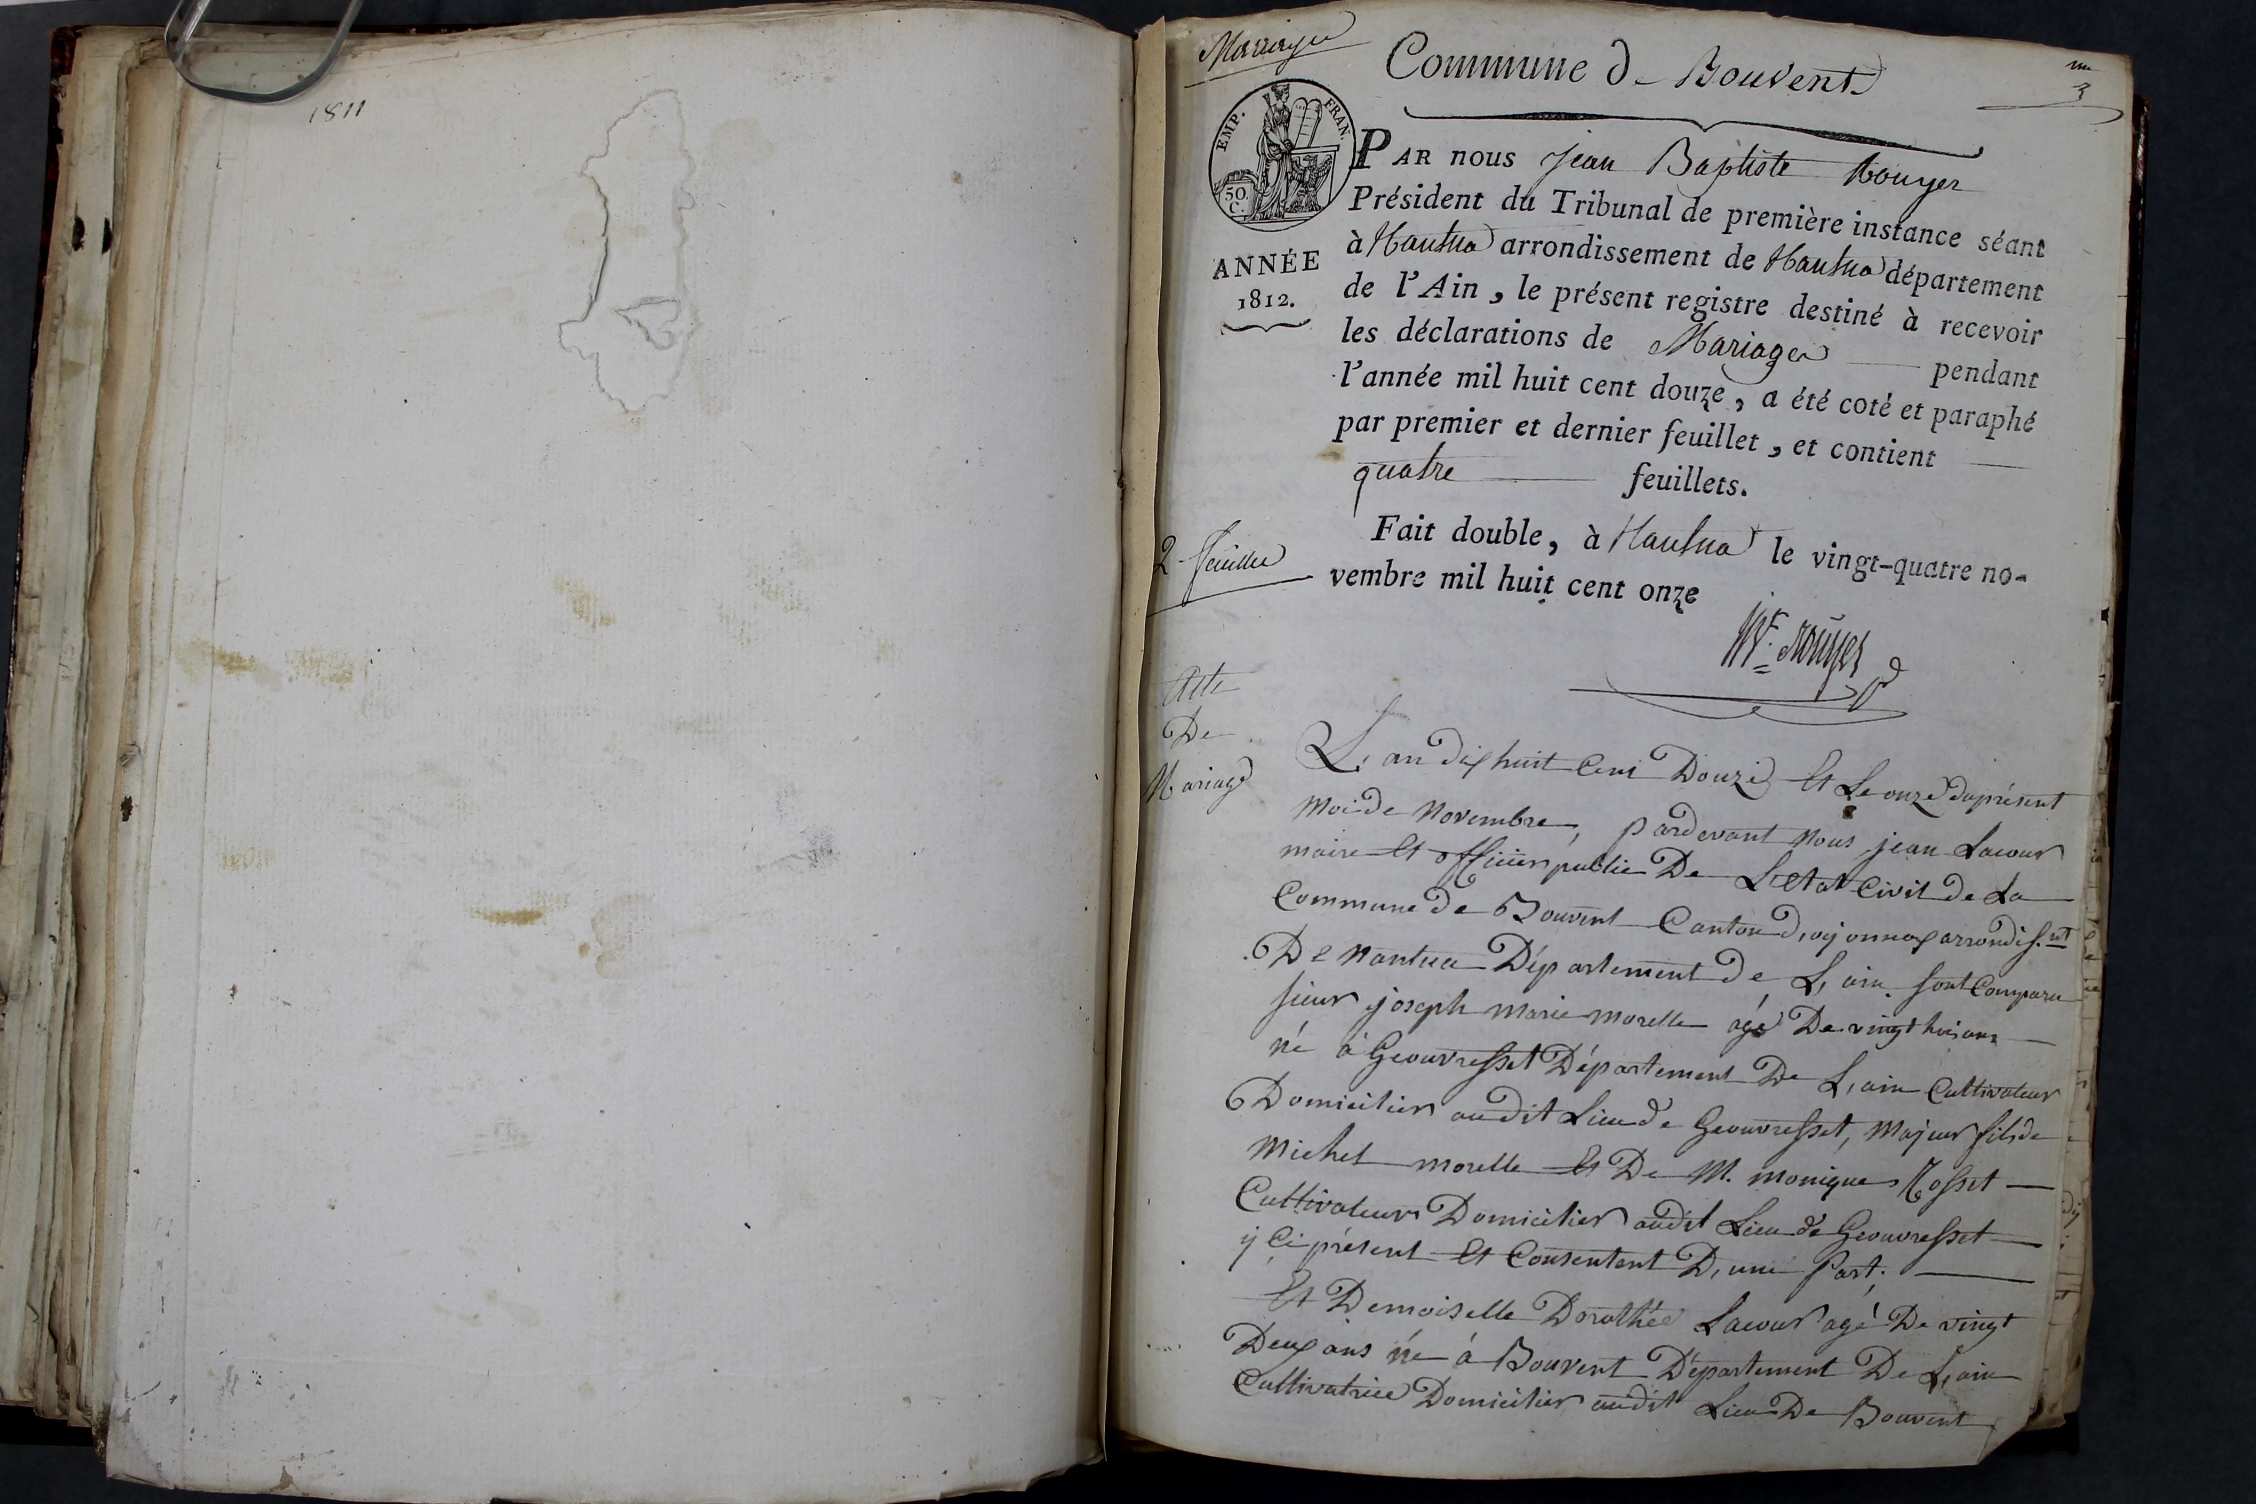 1811
Mariages
Commune de Bouvent
3
EMP. FRAN.
50.
C.
ANNÉE
1812.
PAR nous jean Baptiste Rouyer
Président du Tribunal de première instance séant
à Nantua arrondissement de Nantua département
de l'Ain, le présent registre destiné à recevoir
les déclarations de Mariages pendant
l'année mil huit cent douze, a été coté et paraphé
par premier et dernier feuillet, et contient
quatre feuillets.
Fait double, à Nantua le vingt-quatre no-
vembre mil huit cent onze
2 feuilles
Rouyer
Acte
De
Mariage
L'an dix huit Cent Douze Et Le onze du présent
moi de Novembre, pardevant Nous jean Lacour
maire Et officier public De L'etat Civil de La
Commune de Bouvent Canton d'oyonnax arrondiss.nt
De Nantua Département de L'ain sont Comparu
sieur joseph marie morelle agé De vingt trois ans
né à Geouvresset Département De L'ain Cultivateur
Domicilier audit Lieu de Geouvresset, Majeur fils de
Michel morelle Et De M. monique Rosset
Cultivateurs Domicilier audit Lieu de Geouvresset
y Ci présent Et Consentent D'une Part.
Et Demoiselle Dorothée Lacour agé De vingt
Deux ans né à Bouvent Département De L'ain
Cultivatrice Domicilier audit Lieu De Bouvent